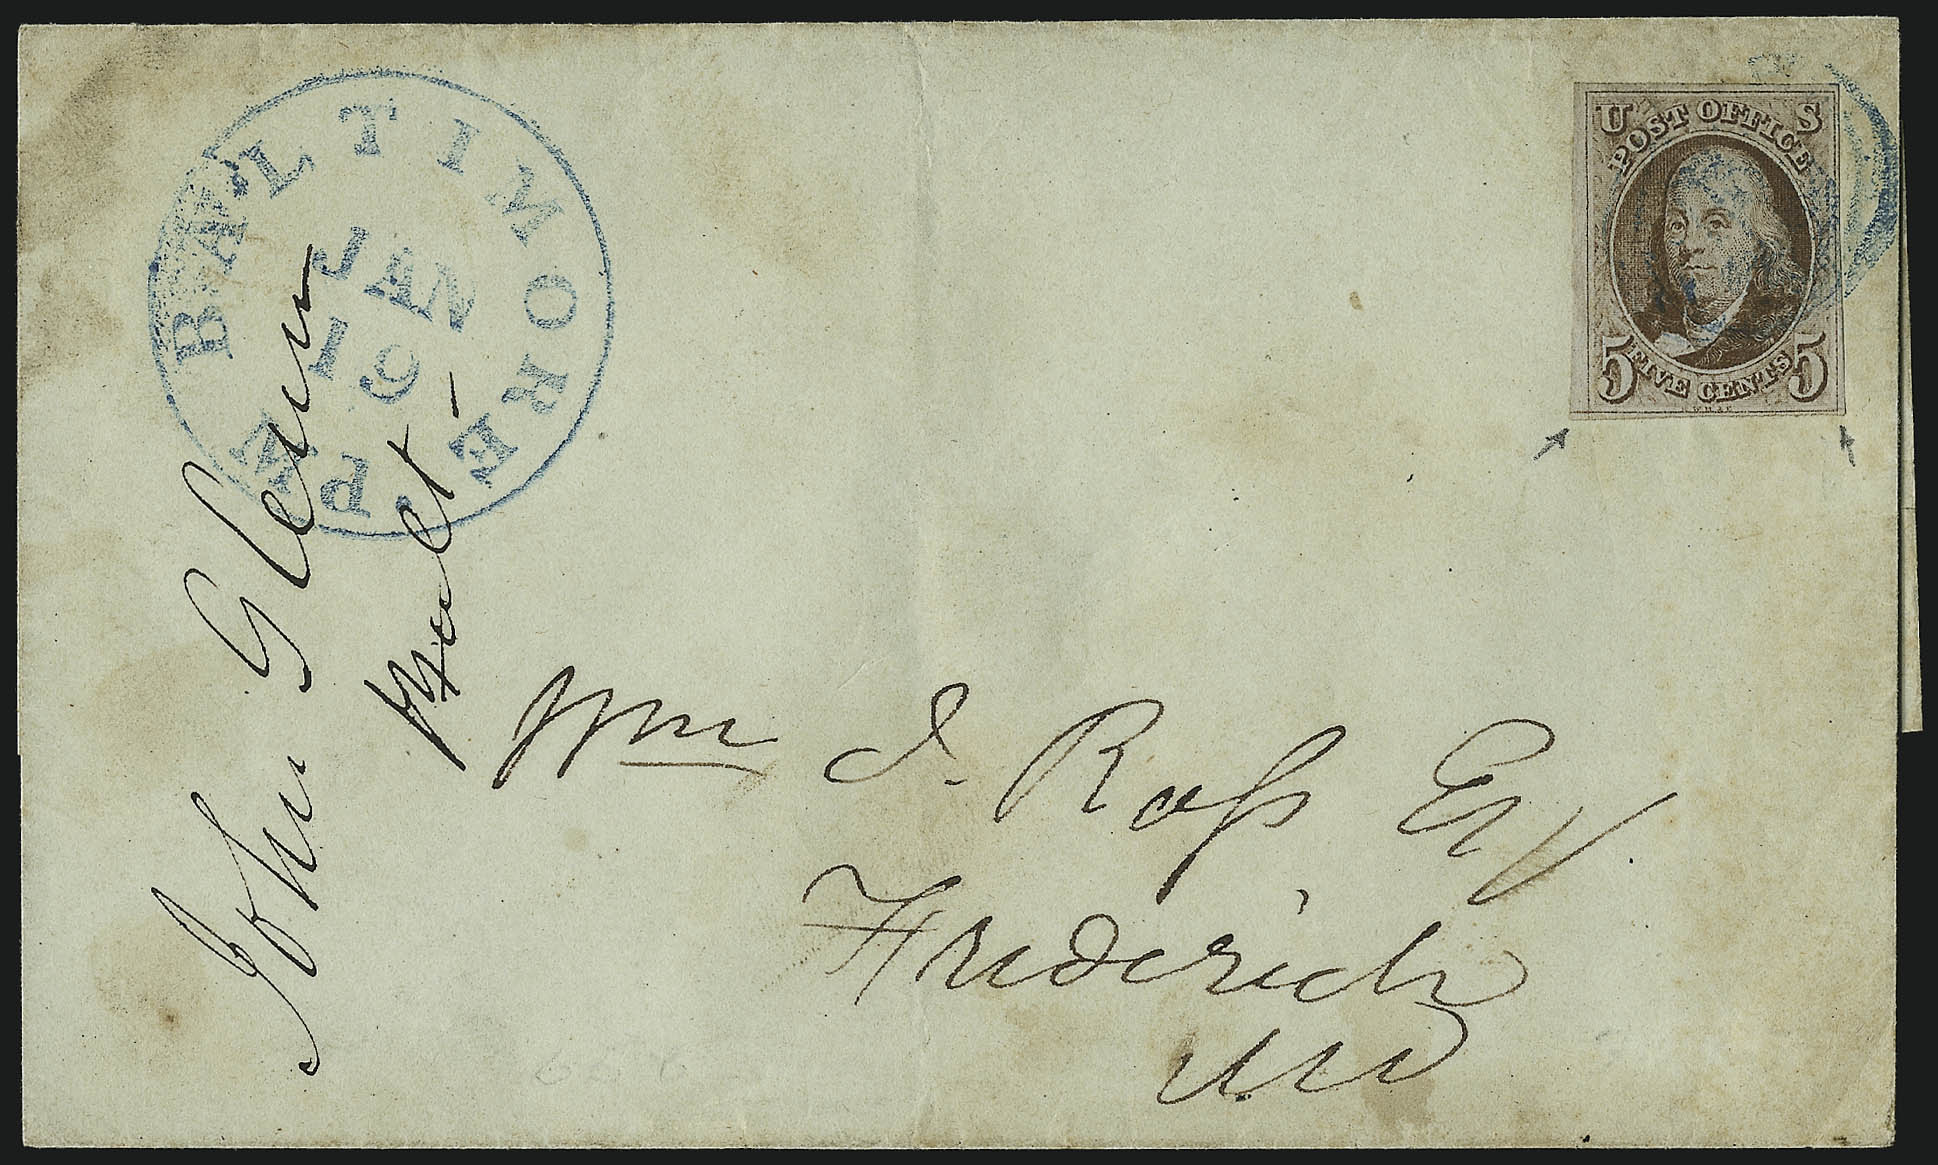 BALTIMORE
JAN
19
PM
U S
POST OFFICE
5 FIVE CENTS 5
John Glenn
Wm J. Ross Esq
Frederick
Md